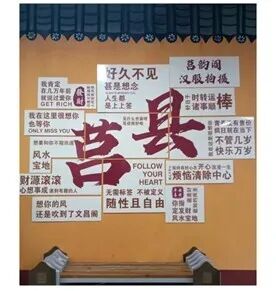 好久不见
甚是想念
人生都
是上上签
我肯定
在几万年前
就说过爱你
GET RICH
莒韵阁
汉服拍摄
时转运
诸事顺
棒
我在这里很想你
也等你
ONLY MISS YOU
莒县
不管几岁
快乐万岁
风水
宝地
FOLLOW
YOUR
HEART
烦恼清除中心
财源滚滚
心想事成
无需标签 不被定义
随性且自由
想你的风
还是吹到了文昌阁
你指
定发财
风水宝地